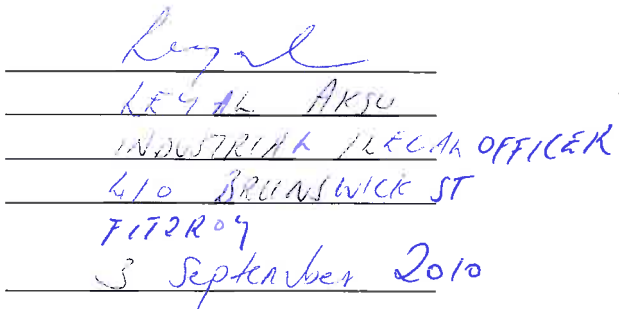 LEYAL AKSU
INDUSTRIAL / LEGAL OFFICER
410 BRUNSWICK ST
FITZROY
3 September 2010